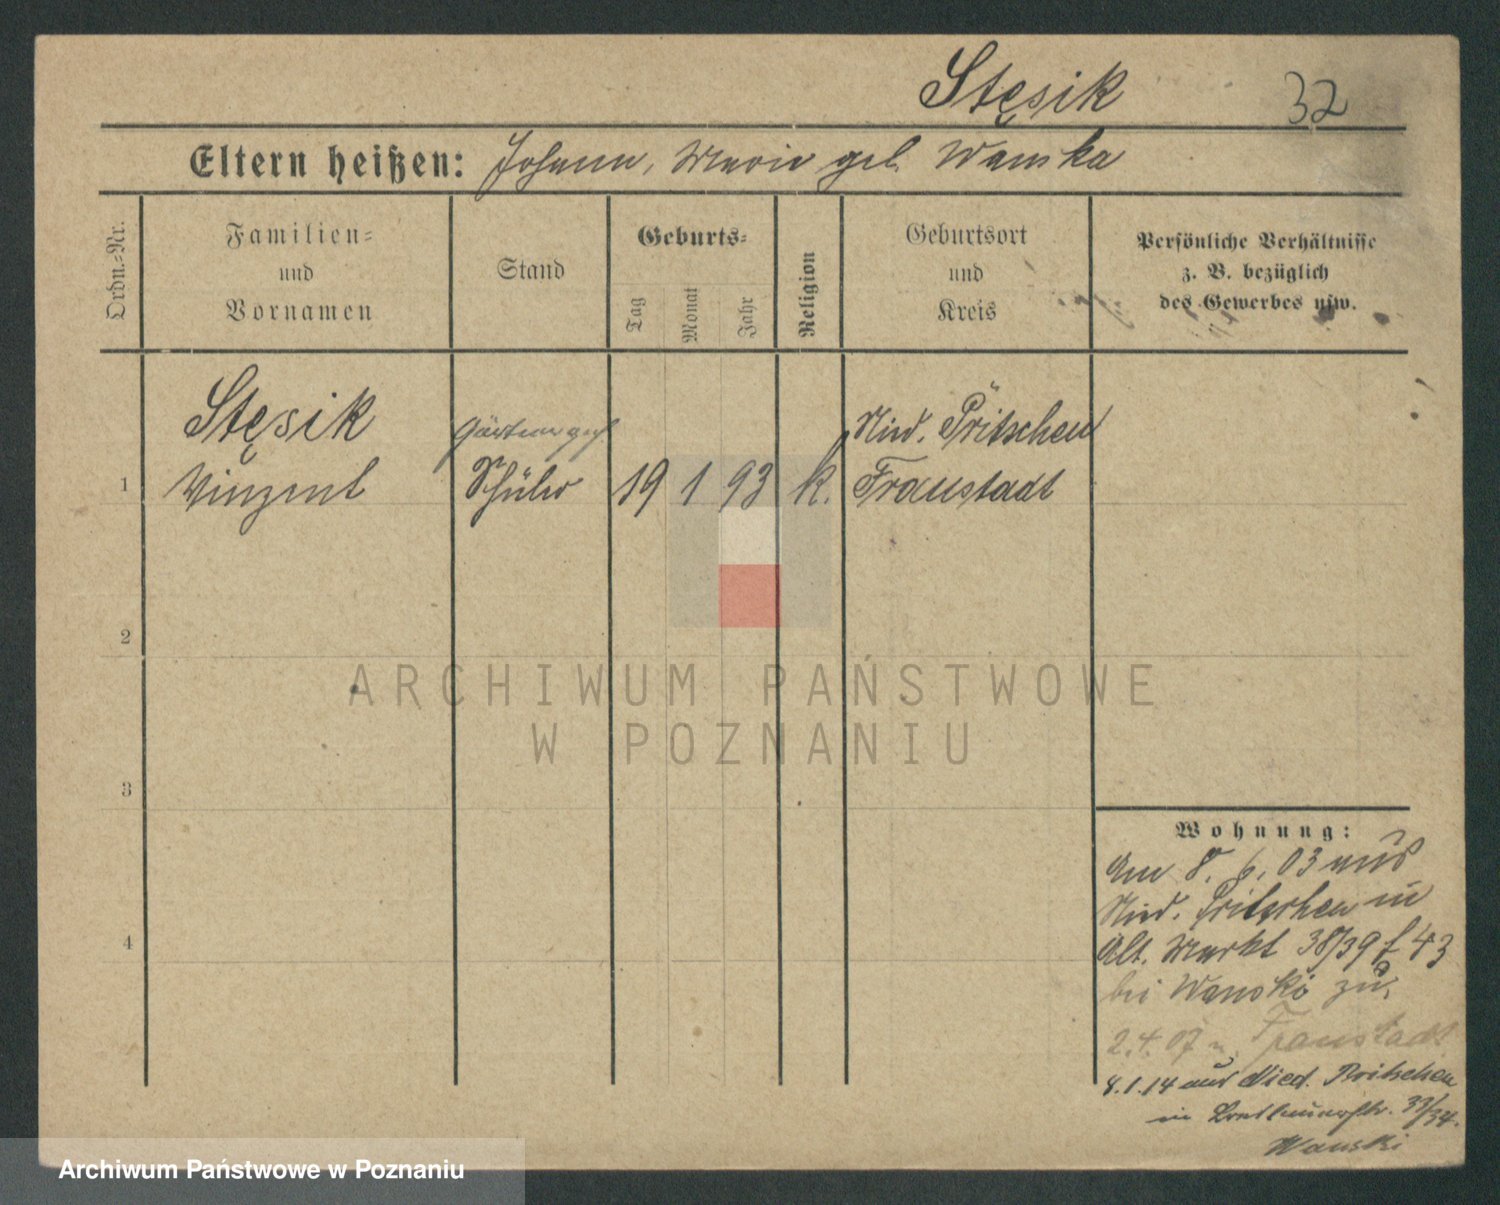 Stęsik 32
Eltern heißen: Johann, Marie geb. Wanska
Ordn.-Nr.
Familien-
und
Vornamen
Stand
Geburts-
Tag
Monat
Jahr
Religion
Geburtsort
und
Kreis
Persönliche Verhältnisse
z. B. bezüglich
des Gewerbes usw.
Stęsik
Gärtner
Nied. Pritschen
1 Vinzent Schüler 19 1 93 k. Fraustadt
2
ARCHIWUM PAŃSTWOWE
W POZNANIU
3
Wohnung:
Am 8. 6. 03 aus
Nied. Pritschen in
Alt. Markt 38/39 43
4
bei Wanski zu.
2.4.07 n. Fraustadt
8.1.14 aus Nied. Pritschen
in 33/34.
Wanski
Archiwum Państwowe w Poznaniu